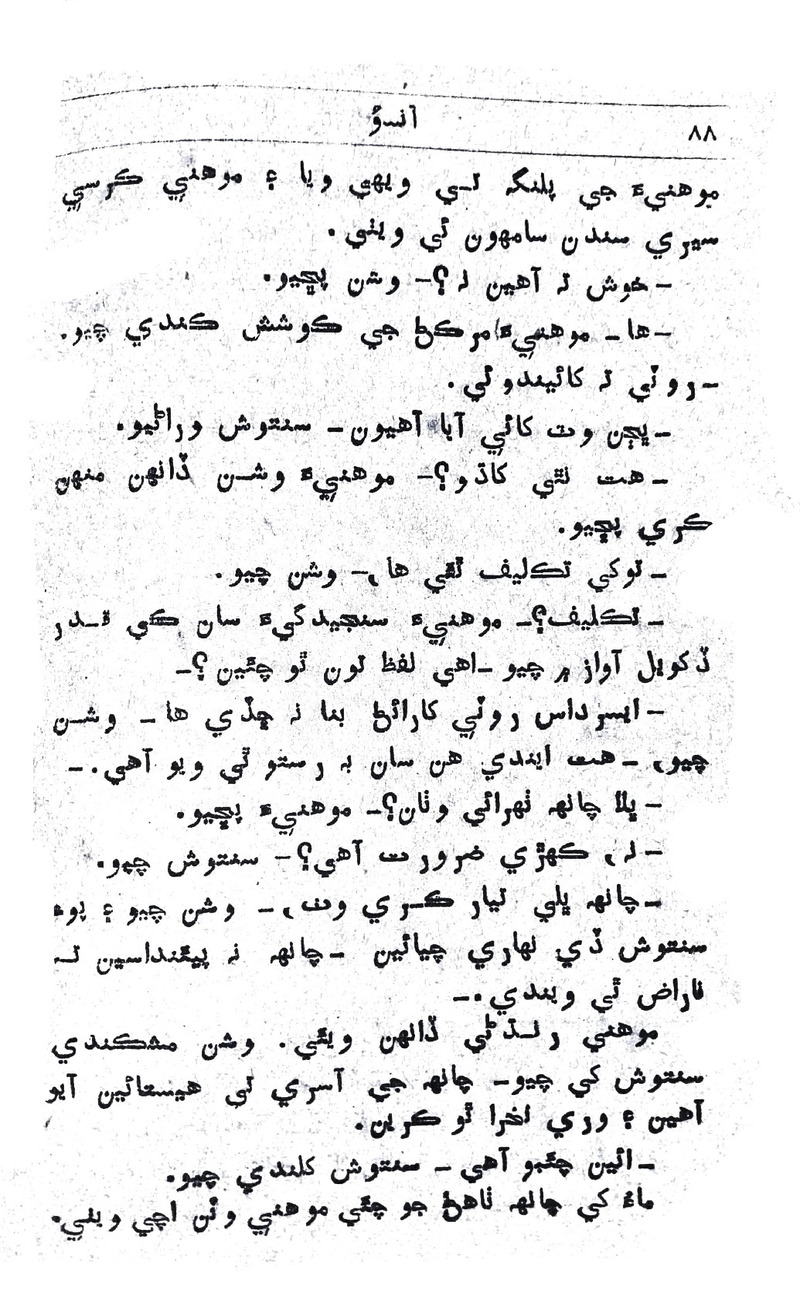 آنسوُ
٨٨
موهنيءَ جي پلنگہ تي ويهي ويا ۽ موهني ڪرسي
سيري سندن سامهون ٿي ويٺي.
–خوش تہ آهين نہ؟– وشن پڇيو.
–ها– موهنيءَ مرڪڻ جي ڪوشش ڪندي چيو.
–روٽي تہ کائيندو ئي.
–ڀڄن وٽ کائي آيا آهيون– سنتوش وراڻيو.
–هت نٿي کاڌو؟– موهنيءَ وشن ڏانهن منهن
ڪري پڇيو.
–توکي تڪليف ٿئي ها،– وشن چيو.
–تڪليف؟– موهنيءَ سنجيدگيءَ سان ڪي قدر
ڏکويل آواز ۾ چيو –اهي لفظ تون ٿو چئين؟–
–ايسرداس روٽي کارائڻ بنا نہ ڇڏي ها– وشن
چيو، –هت ايندي هن سان بہ رستو ٿي ويو آهي.–
–ڀلا چانهہ ٺهرائي وٺان؟– موهنيءَ پڇيو.
–نہ، ڪهڙي ضرورت آهي؟– سنتوش چيو.
–چانهہ ڀلي تيار ڪري وٺ،– وشن چيو ۽ پوءِ
سنتوش ڏي نهاري چيائين –چانهہ نہ پيئنداسين تہ
ناراض ٿي ويندي.–
موهني رنڌڻي ڏانهن ويئي. وشن مشڪندي
سنتوش کي چيو– چانهہ جي آسري تي هيستائين آيو
آهين ۽ وري نخرا ٿو ڪرين.
–ائين چئبو آهي– سنتوش کلندي چيو.
ماءُ کي چانهہ ٺاهڻ جو چئي موهني وٽن اچي ويٺي.